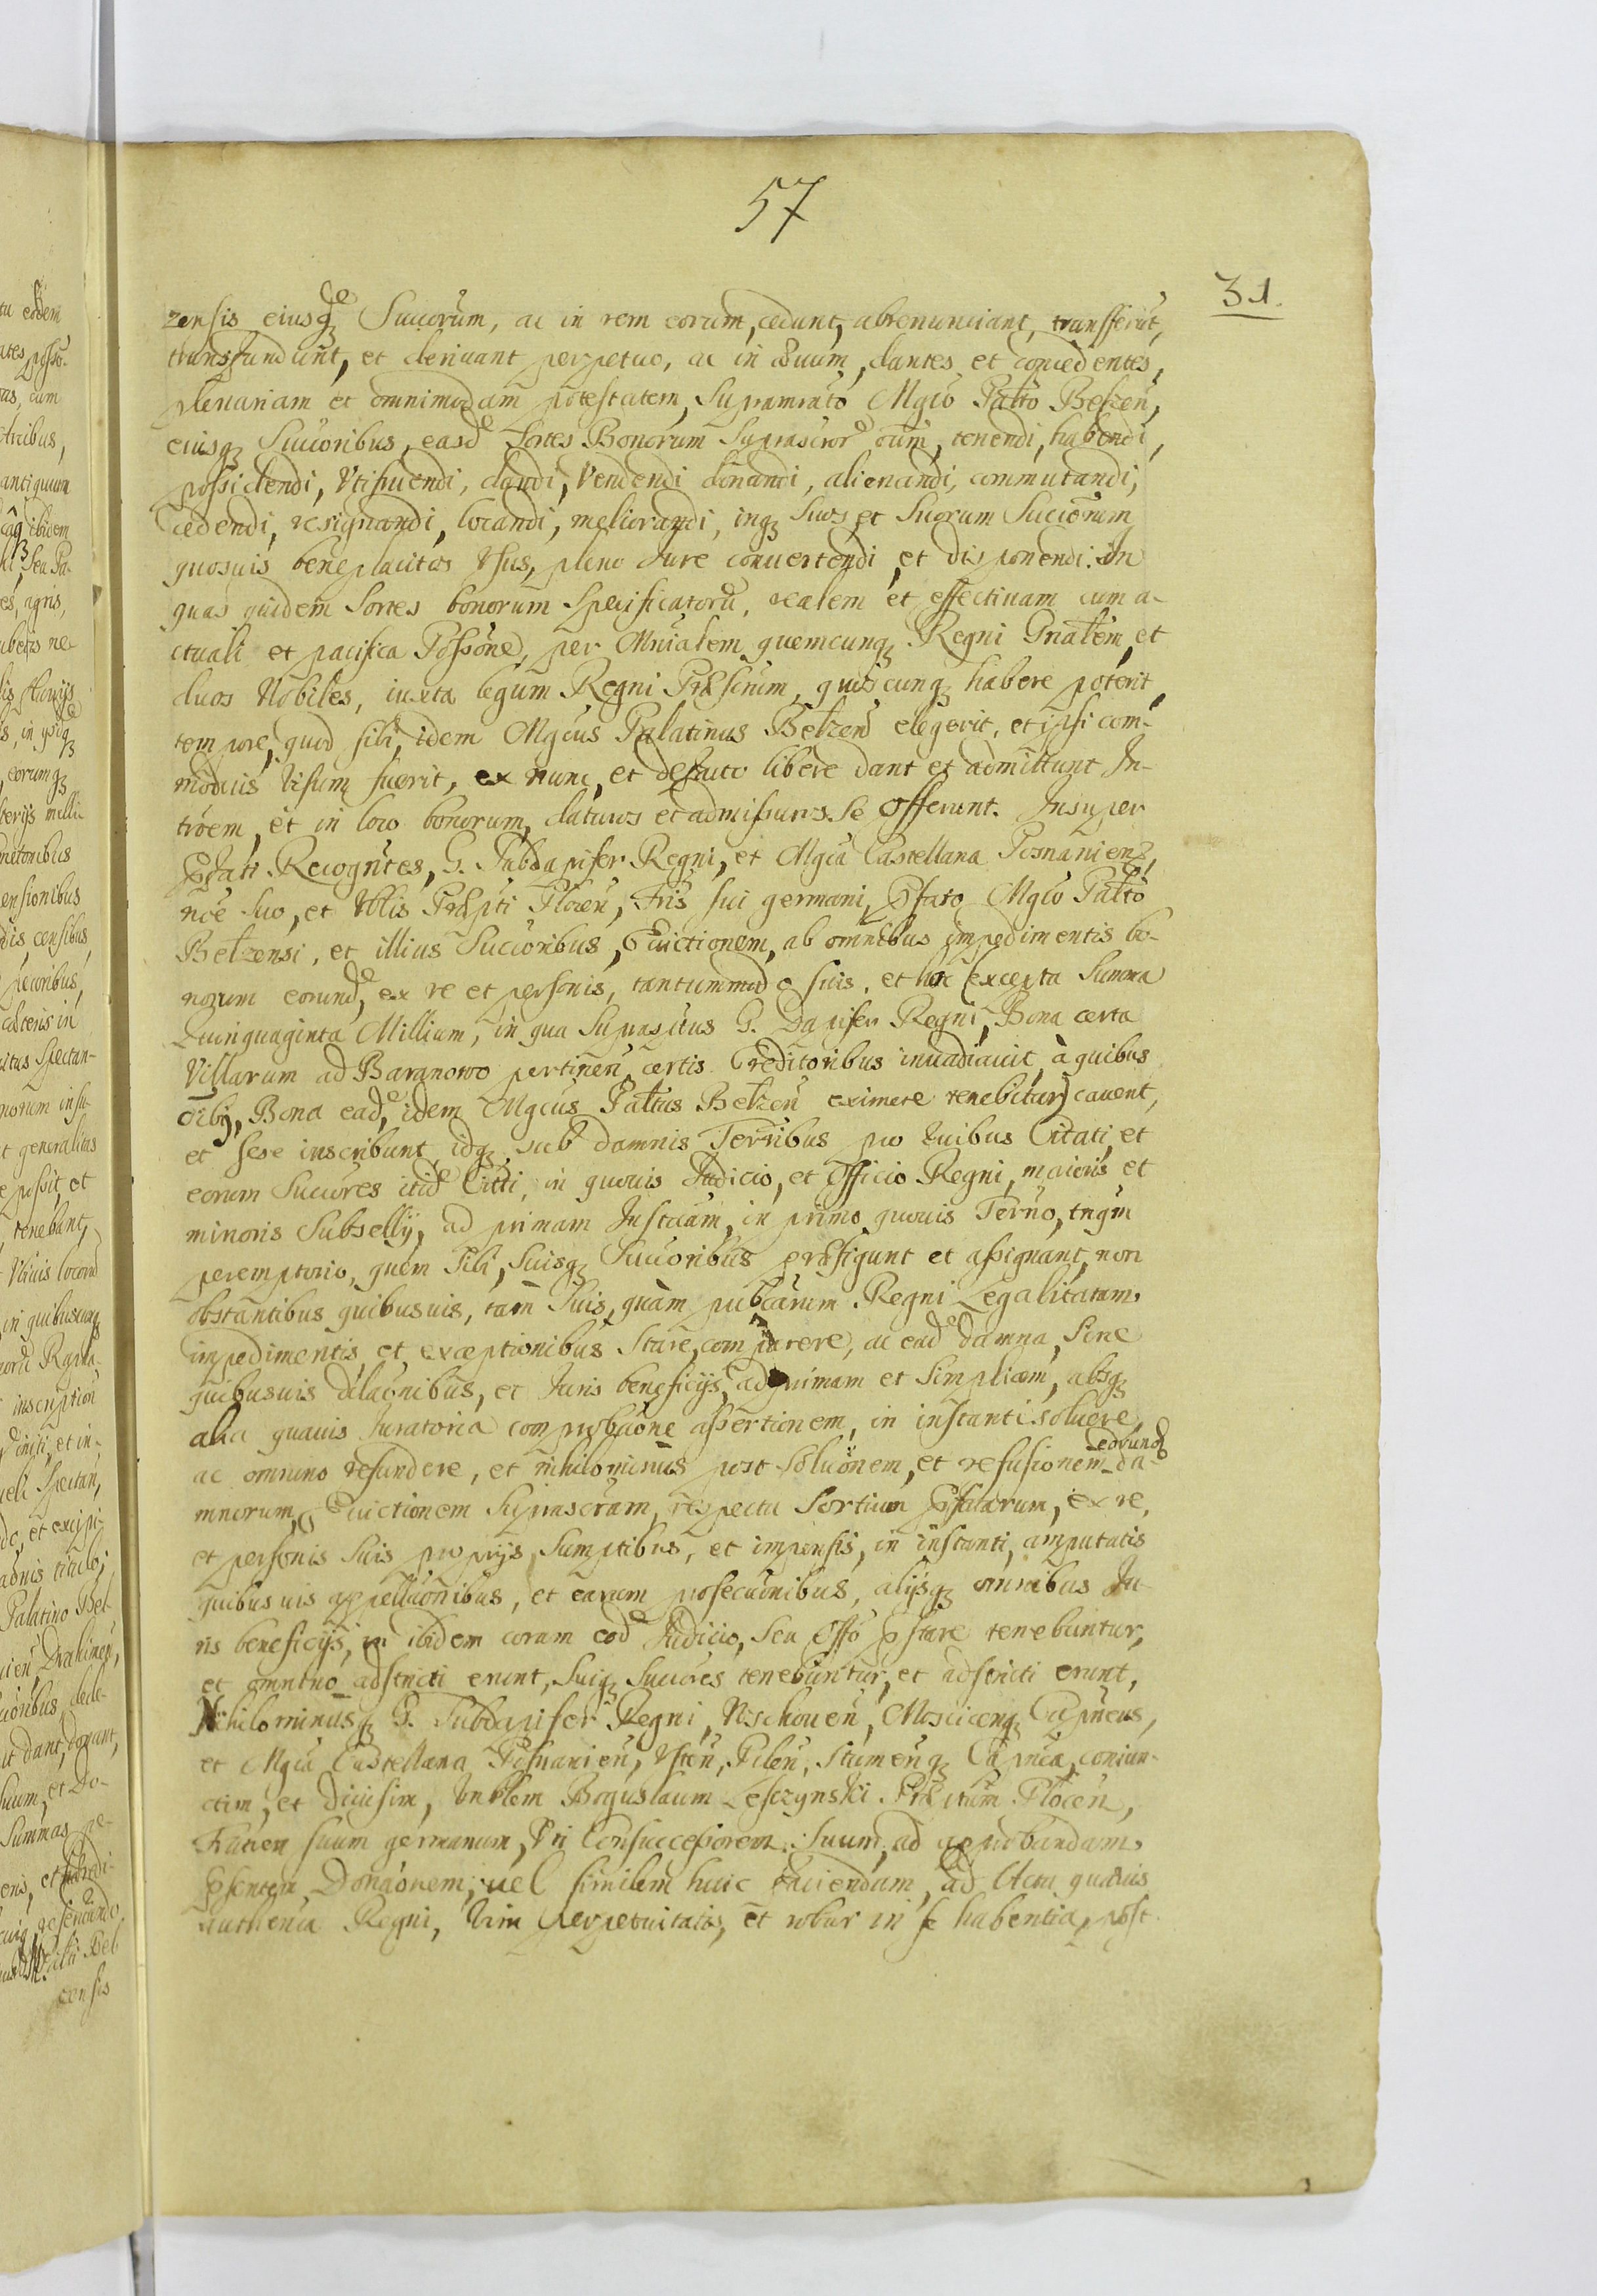 57
31.
zensis eiusq3 Succorum, ac in rem eorum, cedunt, abrenunciant, transferūt,
transfundunt, et deriuant perpetuo, ac in æuum, dantes et concedentes,
plenariam et omnimodam potestatem, Supramtato Mgco Palto Belzen,
eiusq3 Succoribus, easd Sortes Bonorum Suprascror oum, tenendi, habendi,
possidendi, Vtifruendi, dandi, Vendendi donandi, alienandi, commutandi,
cedendi, resignandi, locandi, meliorandi, inq3 Suos et Suorum Succorum
quosuis beneplacitos Vsus, pleno Iure conuertendi et disponendi. In
quas quidem Sortes bonorum Specificatorū, realem et effectiuam cum a-
ctuali et pacifica Possone, per Mnialem quemcunq3 Regni Gnalem, et
duos Nobiles, iuxta legum Regni Præscrum, quiscunq3 habere poterit,
tempore, quod sibi, idem Mgcus Palatinus Belzen elegerit, et ipsi com-
modius Visum fuerit, ex nunc, et defacto libere dant et admittunt In-
troem, et in loco bonorum, daturos et admissuros Se Offerunt. Insuper
Pdati Recogntes, G. Subdapifer Regni, et Mgca Castellana Posnanien,
nōe suo, et Vblis Præpti Plocen, Fris sui germani, Pfato Mgco Palto
Belzensi, et illius Succoribus, Euictionem, ab omnibus impedimentis bo-
norum eorund, ex re et personis, tantummodo suis, et hoc (excepta Summa
Quinquaginta Millium, in qua Supraspttus G. Dapifer Regni, Bona certa
Villarum ad Baranowo pertinen certis Creditoribus inuadiauit, à quibus
oiby, Bona ead, idem Mgcus Paltus Belzen eximere tenebitur) cauent,
et sese inscribunt, idq3 sub damnis Terribus pro quibus Citati, et
eorum Succores itid Citti, in quouis Iudicio, et Officio Regni, maioris et
minoris Subsellij, ad primam Instciam, in primo quouis Terno, tnqm
peremptorio, quem Sibi, Suisq3 Succoribus præfigunt et assignant, non
obstantibus quibusuis, tam Suis, quàm publcarum Regni Legalitatum,
impedimentis et exceptionibus Stare, comparere, ac ead damna, Sine
quibusuis dilaonibus, et Iuris beneficijs, ad primam et Simplicem, absq3
alia quauis Iuratoria comprobaōne assertionem, in instanti soluere,
ac omnino refundere, et nihilominus post Soluōnem, et refusionem eorund da-
mnorum, Euictionem Suprascram, respectu Sortium Pfatarum, ex re,
et personis Suis proprijs, Sumptibus, et impensis, in instanti, amputatis
quibusuis appellaōnibus, et earum prosecuōnibus, alijsq3 omnibus Iu-
ris beneficijs, ibidem coram eod Iudicio, Seu Offo Pstare tenebuntur,
et omnino adstricti erunt, Suiq3 Succores tenebuntur, et adstricti erunt,
Nihilominusq3 G. Subdapifer Regni, Vschouen, Moscicenq3 Capneus,
et Mgca Castellana Posnanien, Vsten, Pilen, Stumenq3 Capnea, coniun-
ctim, et Diuisim, Vnblem Boguslaum Leszczynski Præitum Plocen,
Fratrem suum germanum, Vti Consuccessorem Suum, ad approbandam,
Psentem Donaōnem, uel similem huic faciendam, ad Acta quæuis
authenca Regni, Vim perpetuitatis, et robur in se habentia, post